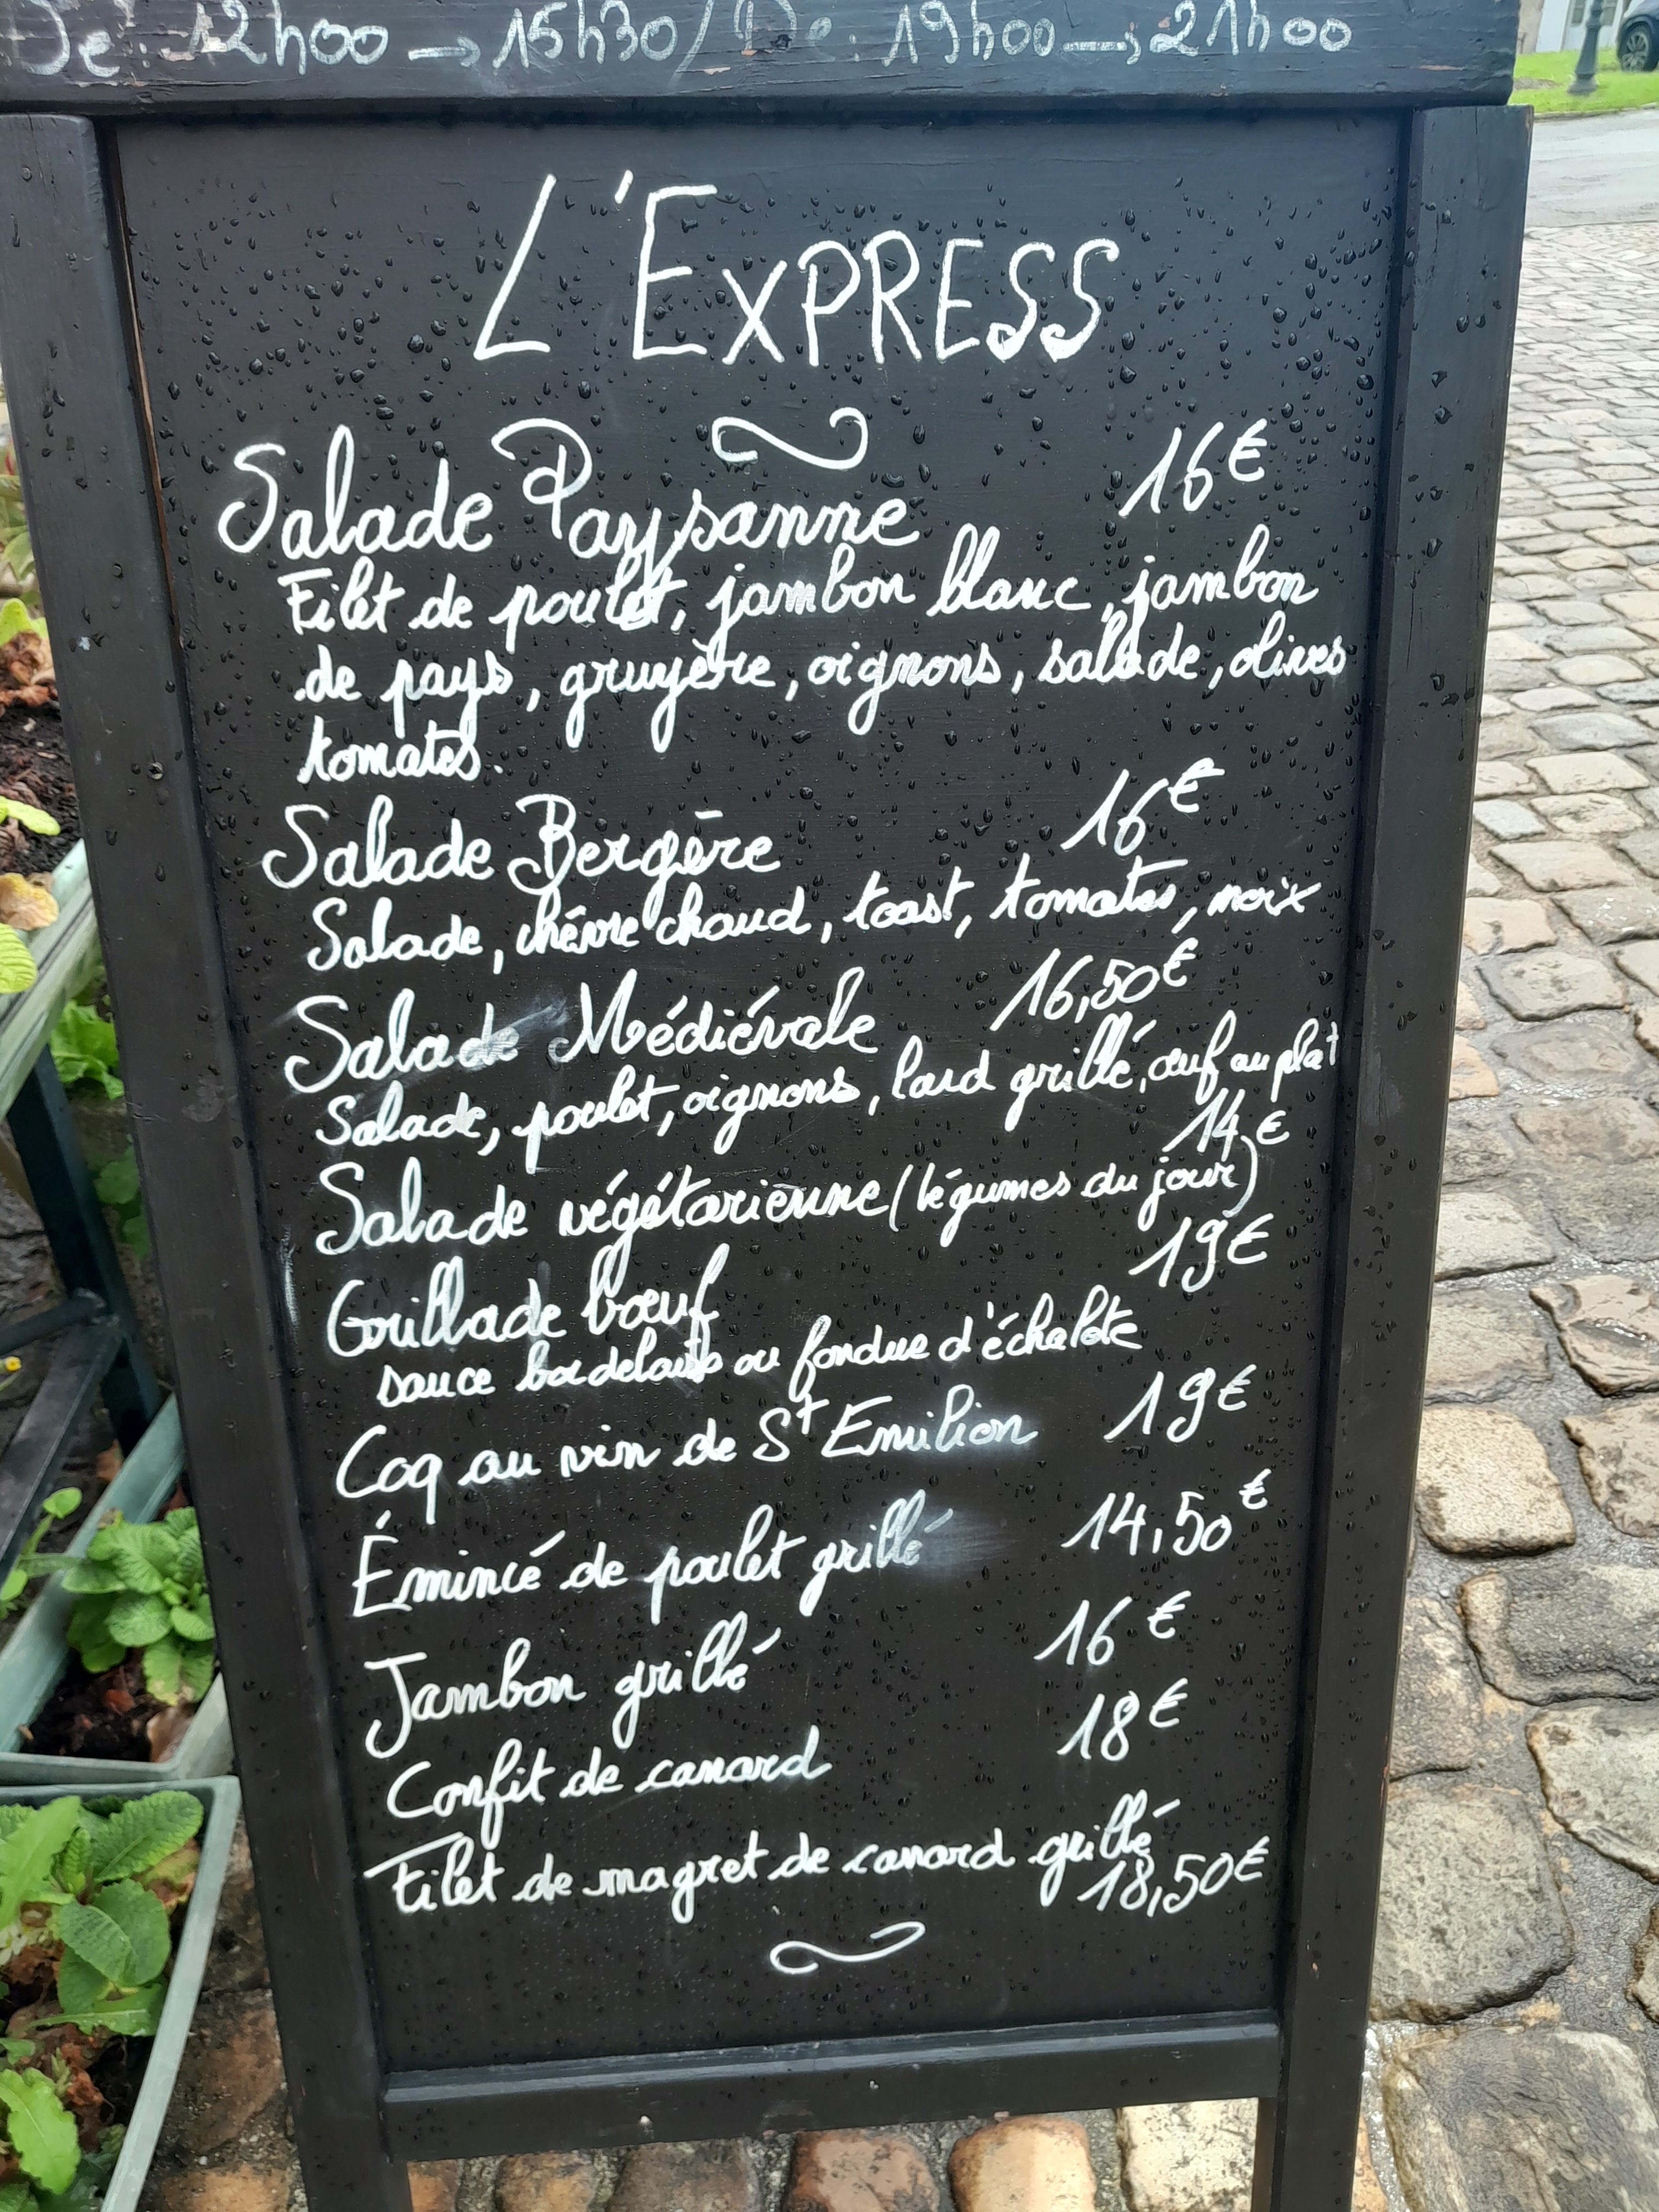 De: 12h00 → 15h30/De: 19h00 → 21h00
L'EXPRESS
Salade Paysanne 16€
Filet de poulet, jambon blanc, jambon
de pays, gruyère, oignons, salade, olives
tomates.
Salade Bergère 16€
Salade, chèvre chaud, toast, tomates, noix
Salade Médiévale 16,50€
Salade, poulet, oignons, lard grillé, œuf au plat
14€
Salade végétarienne (légumes du jour)
Grillade bœuf 19€
sauce bordelaise ou fondue d'échalote
Coq au vin de St Emilion 19€
Émincé de poulet grillé 14,50€
Jambon grillé 16€
Confit de canard 18€
Filet de magret de canard grillé
18,50€